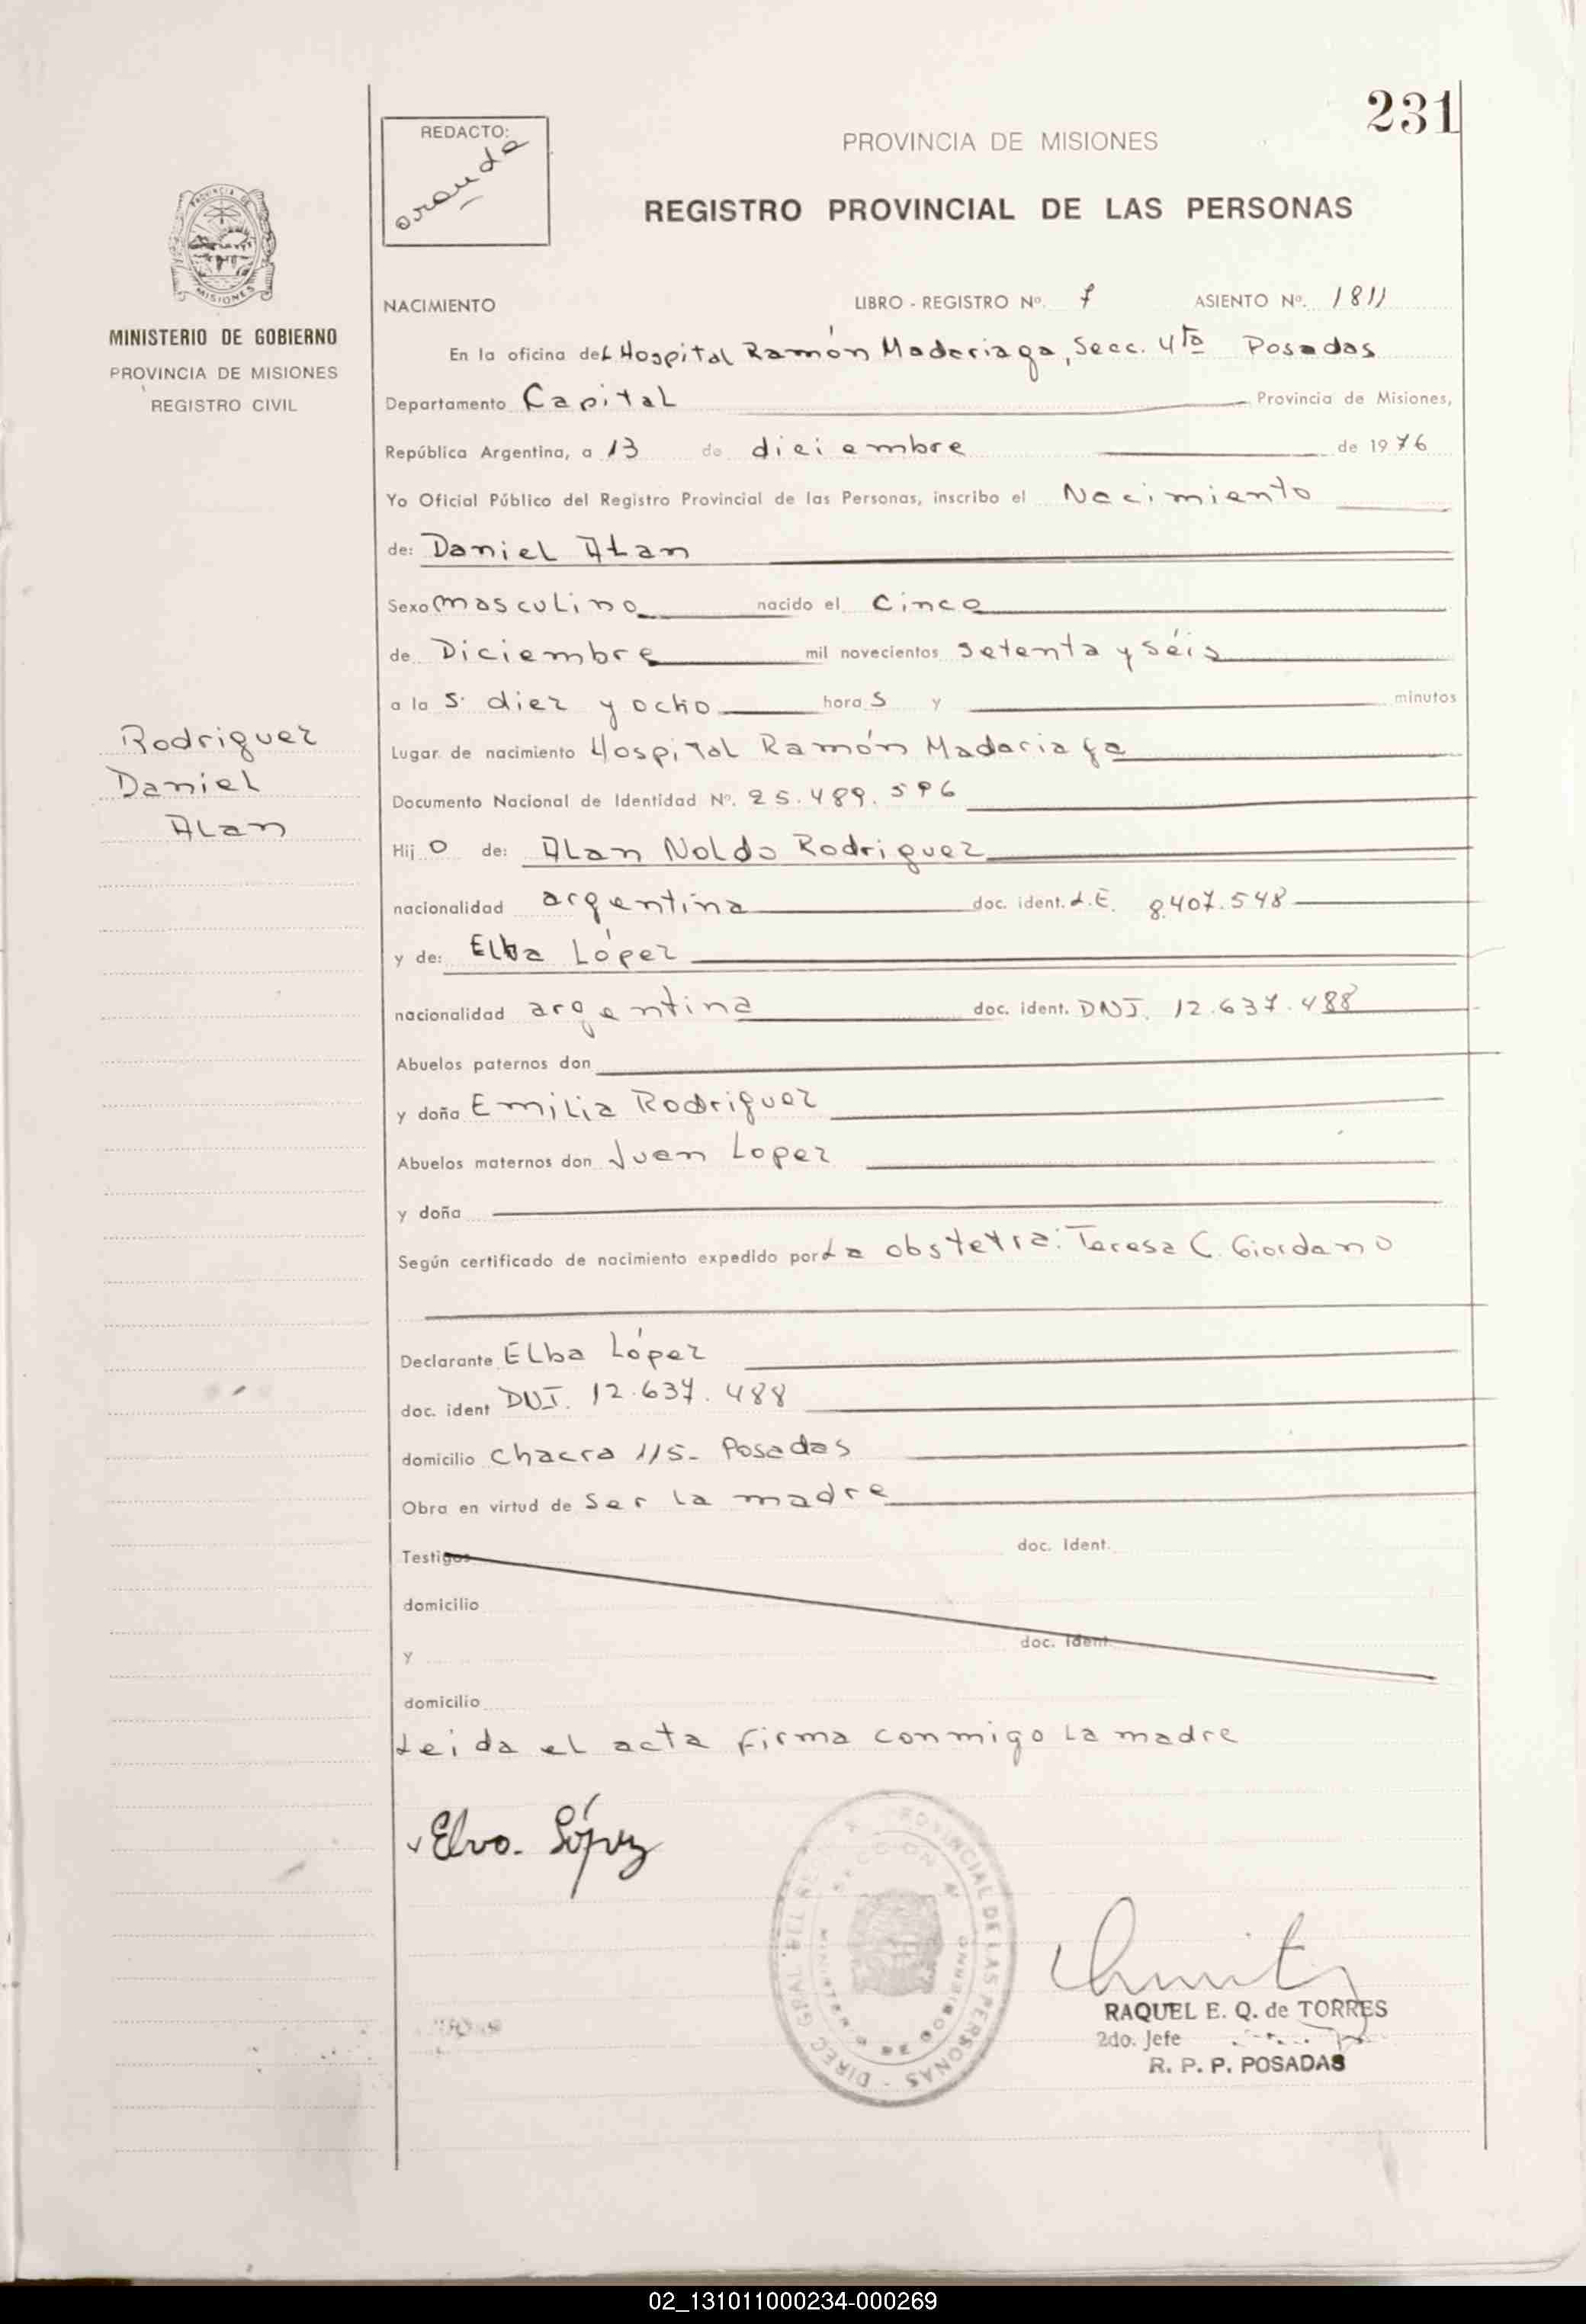 231
REDACTO:
PROVINCIA DE MISIONES
REGISTRO PROVINCIAL DE LAS PERSONAS
MISIONES
MINISTERIO DE GOBIERNO
PROVINCIA DE MISIONES
REGISTRO CIVIL
NACIMIENTO LIBRO - REGISTRO Nº. 7 ASIENTO Nº. 1811
En la oficina del Hospital Ramón Madariaga, Secc. 4ta Posadas
Departamento Capital Provincia de Misiones,
República Argentina, a 13 de diciembre de 1976
Yo Oficial Público del Registro Provincial de las Personas, inscribo el Nacimiento
de: Daniel Alan
Sexo masculino nacido el Cinco
de Diciembre mil novecientos setenta y séis
a la s. diez y ocho hora s y minutos
Lugar de nacimiento Hospital Ramón Madariaga
Rodriguez
Daniel
Alan
Documento Nacional de Identidad Nº. 25.489.596
Hij o de: Alan Noldo Rodriguez
nacionalidad argentina doc. ident. L.E. 8.407.548
y de: Elba López
nacionalidad argentina doc. ident. DNI. 12.637.488
Abuelos paternos don
y doña Emilia Rodriguez
Abuelos maternos don Juan Lopez
y doña
Según certificado de nacimiento expedido por La obstetra: Teresa C. Giordano
Declarante Elba López
doc. ident DNI. 12.637.488
domicilio Chacra 115- Posadas
Obra en virtud de ser la madre
Testigos doc. Ident.
domicilio
y doc. Ident.
domicilio
Leida el acta firma conmigo la madre
Elva. López
DIREC. GRAL. DEL REG. PROVINCIAL DE LAS PERSONAS
SECCION 4
MINISTERIO DE GOBIERNO
RAQUEL E. Q. de TORRES
2do. Jefe
R. P. P. POSADAS
02_131011000234-000269